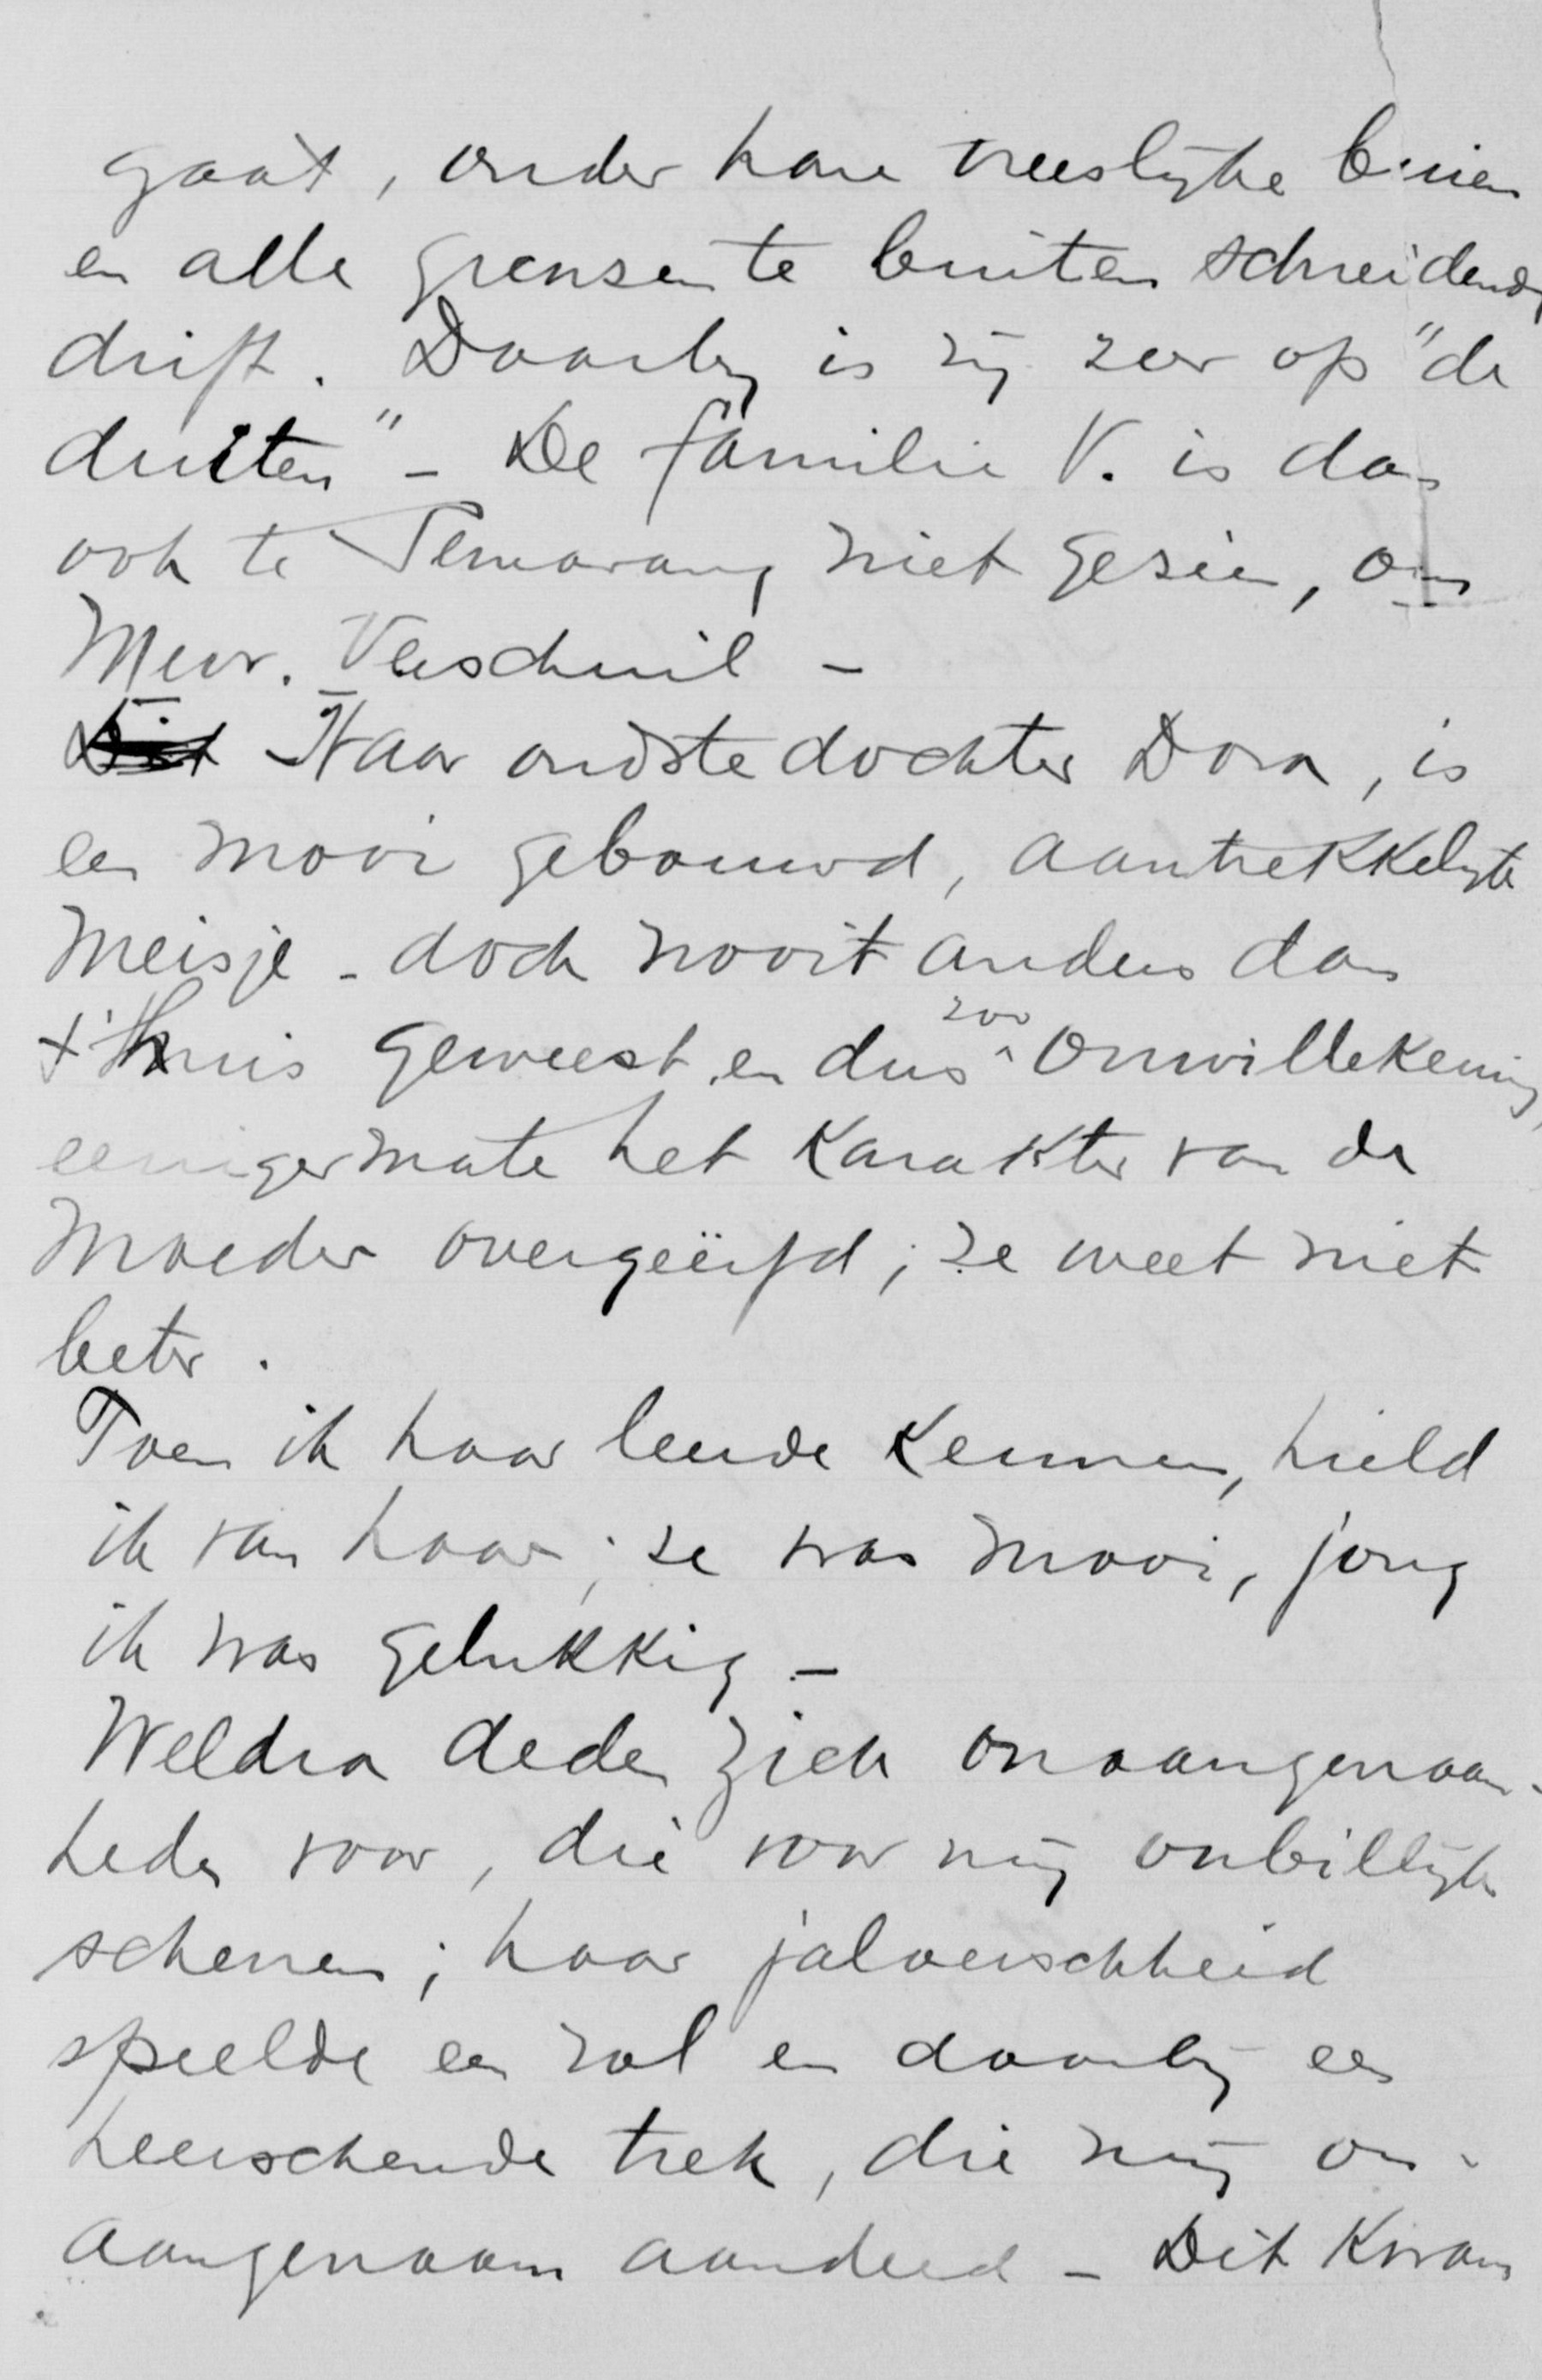 gaat, onder hare vreeslijke buien
en alle grenzen te buiten schreidende
drift. Daarbij is zij zeer op "de
duiten" - De familie V. is dan
ook te Semarang niet gezien, om
Mevr. Verschuil -
Dit Haar oudste dochter Dora, is
een mooi gebouwd, aantrekkelijk
meisje - doch nooit anders dan
t'huis geweest en dus zoo onwillekeurig
eenigermate het karakter van de
moeder overgeërfd; ze weet niet
beter.
Toen ik haar leerde kennen, hield
ik van haar; ze was mooi, jong
ik was gelukkig -
Weldra deden zich onaangenaam-
heden voor, die voor mij onbillijk
schenen; haar jaloerschheid
speelde een rol en daarbij een
heerschende trek, die mij on-
aangenaam aandeed - Dit kwam